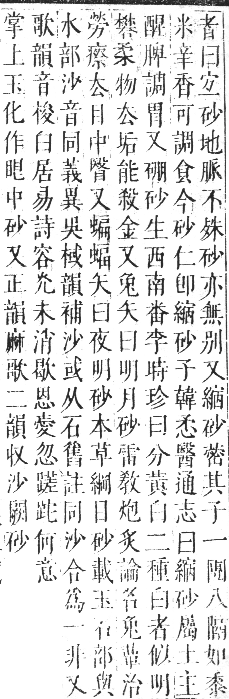 者曰宜砂地脈不殊砂亦無別又縮砂蔤其子一團八隔如黍
米辛香可調食今砂仁卽縮砂子韓悉醫通志曰縮砂屬土主
醒脾調胃又硇砂生西南番李時珍曰分黃白二種白者似明
礬柔物去垢能殺金又兔矢曰明月砂雷斆炮炙論名兔蕈治
勞瘵去目中瞖又蝙蝠矢曰夜明砂本草綱目砂載玉石部與
水部沙音同義異吳棫韻補沙或从石舊註同沙合爲一非又
歌韻音梭白居易詩容光未消歇恩愛忽蹉跎何意
掌上玉化作眼中砂又正韻麻歌二韻收沙闕砂